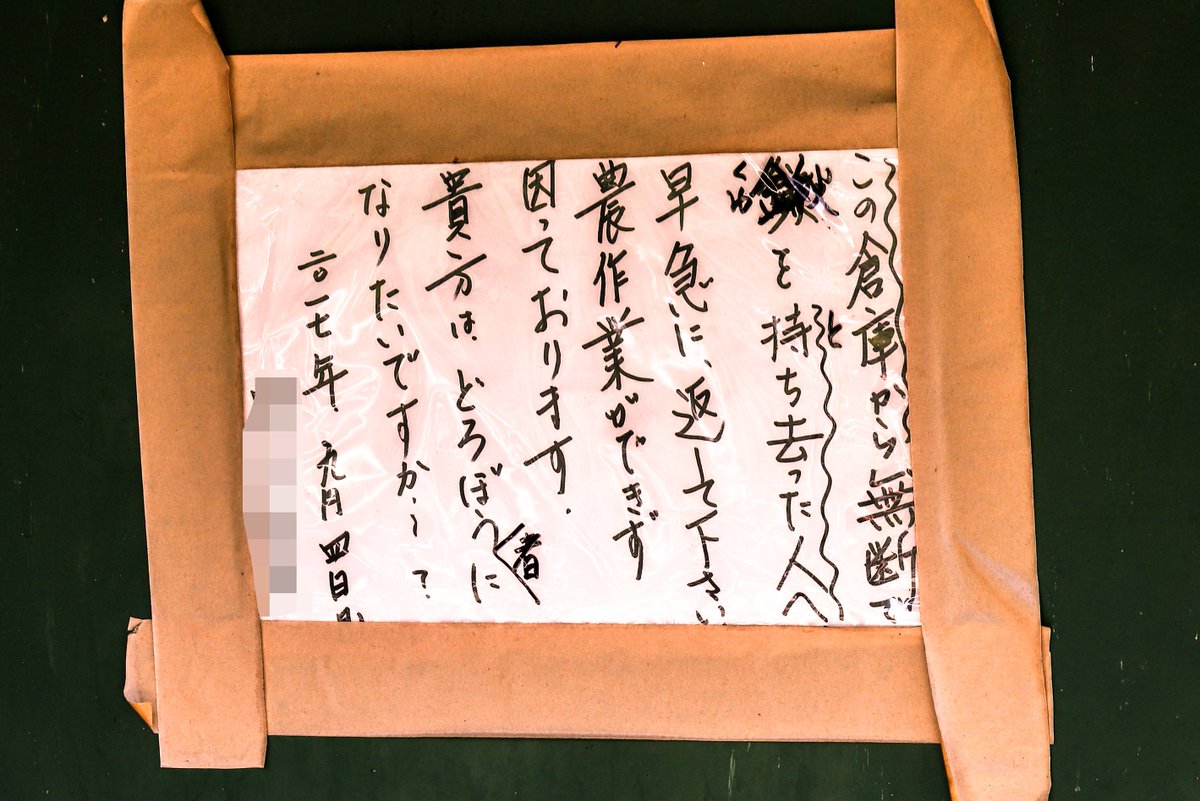 この倉庫から無断で
くわ鍬を持ち去った人へ
と
早急に、返して下さい
農作業ができず
困っております.
貴方は、どろぼう者に
なりたいですか〜?
二〇一七年.九月四日